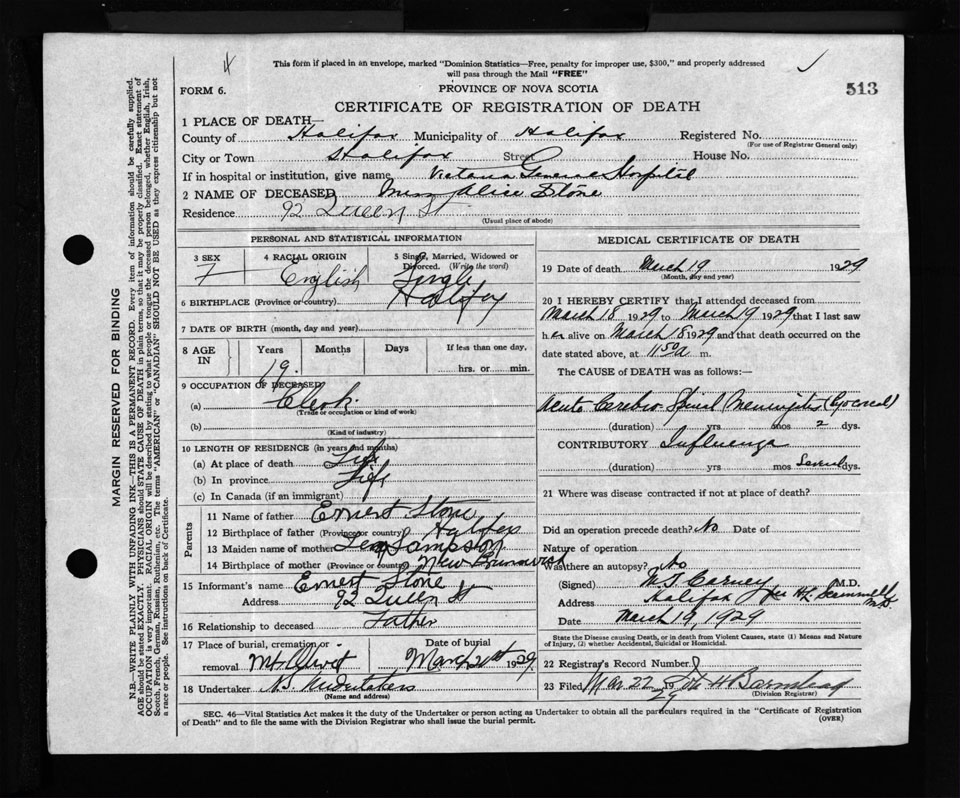 This form if placed in an envelope, marked "Dominion Statistics—Free, penalty for improper use, $300," and properly addressed
will pass through the Mail "FREE"
513
FORM 6.
PROVINCE OF NOVA SCOTIA
CERTIFICATE OF REGISTRATION OF DEATH
1 PLACE OF DEATH—
County of Halifax Municipality of Halifax Registered No.
(For use of Registrar General only)
City or Town Halifax Street House No.
If in hospital or institution, give name Victoria General Hospital
2 NAME OF DECEASED Miss Alice Stone
Residence 92 Queen St
(Usual place of abode)
PERSONAL AND STATISTICAL INFORMATION
3 SEX F
4 RACIAL ORIGIN English
5 Single, Married, Widowed or Divorced. (Write the word) Single
6 BIRTHPLACE (Province or country) Halifax
7 DATE OF BIRTH (month, day and year)
8 AGE IN Years Months Days If less than one day,
19. hrs. or min.
9 OCCUPATION OF DECEASED
(a) Clerk.
(Trade or occupation or kind of work)
(b)
(Kind of industry)
10 LENGTH OF RESIDENCE (in years and months)
(a) At place of death Life
(b) In province Life
(c) In Canada (if an immigrant)
Parents
11 Name of father Ernest Stone
12 Birthplace of father (Province or country) Halifax
13 Maiden name of mother Sampson
14 Birthplace of mother (Province or country) New Brunswick
15 Informant's name Ernest Stone
Address 92 Queen St
16 Relationship to deceased Father
17 Place of burial, cremation or removal Mt Olivet
Date of burial March 21st 1929
18 Undertaker N.S. Undertakers
(Name and address)
MEDICAL CERTIFICATE OF DEATH
19 Date of death March 19 1929
(Month, day and year)
20 I HEREBY CERTIFY that I attended deceased from
March 18 1929 to March 19 1929 that I last saw
her alive on March 18 1929 and that death occurred on the
date stated above, at 11.50 a m.
The CAUSE of DEATH was as follows:—
Acute Cerebro Spinal Meningitis
(duration) yrs mos 2 dys.
CONTRIBUTORY Influenza
(duration) yrs mos Several dys.
21 Where was disease contracted if not at place of death?
Did an operation precede death? No Date of
Nature of operation
Was there an autopsy? No
(Signed) W J Carney M.D.
Address Halifax
Date March 19, 1929
State the Disease causing Death, or in death from Violent Causes, state (1) Means and Nature
of Injury, (2) whether Accidental, Suicidal or Homicidal.
22 Registrar's Record Number
23 Filed Mar 22 1929
(Division Registrar)
SEC. 46—Vital Statistics Act makes it the duty of the Undertaker or person acting as Undertaker to obtain all the particulars required in the "Certificate of Registration
of Death" and to file the same with the Division Registrar who shall issue the burial permit.
(OVER)
MARGIN RESERVED FOR BINDING
N.B.—WRITE PLAINLY WITH UNFADING INK—THIS IS A PERMANENT RECORD. Every item of information should be carefully supplied.
AGE should be stated EXACTLY. PHYSICIANS should STATE CAUSE OF DEATH in plain terms, so that it may be properly classified. Exact statement of
OCCUPATION is very important. RACIAL ORIGIN will be described by stating to what people or tongue the deceased person belonged, whether English, Irish,
Scotch, French, German, Russian, Ruthenian, etc. The terms "AMERICAN" or "CANADIAN" SHOULD NOT BE USED as they express citizenship but not
a race or people. See instructions on back of Certificate.